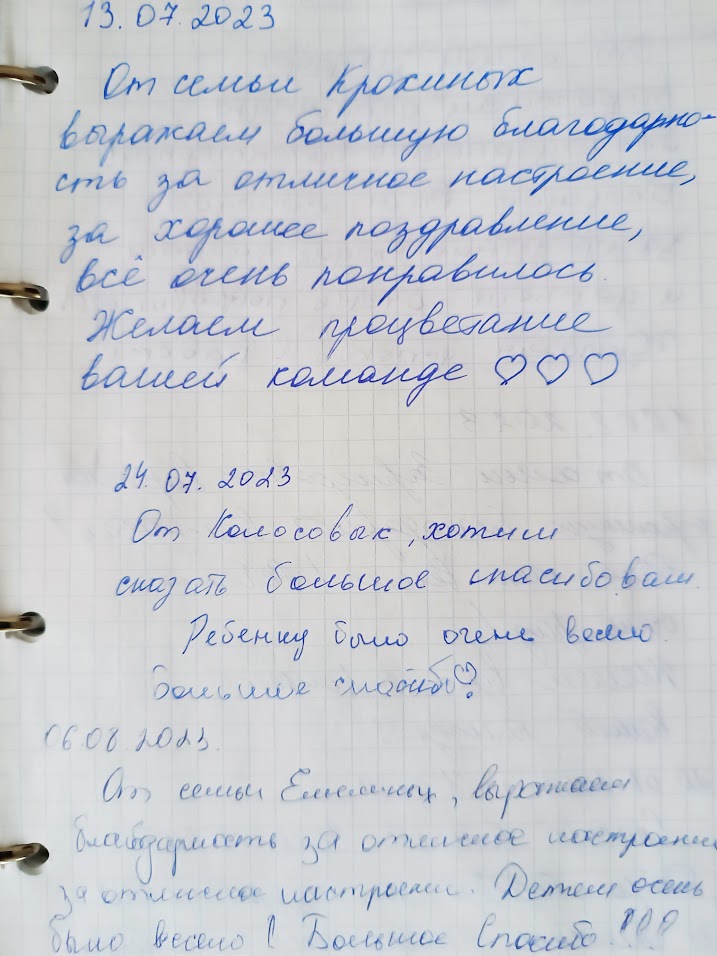 13.07.2023
От семьи Крохиных
выражаем большую благодарно-
сть за отличное настроение,
за хорошее поздравление,
всё очень понравилось.
Желаем процветание
вашей команде ♡♡♡
24.07.2023
От Колосовых, хотим
сказать большое спасибо вам.
Ребенку было очень весело.
Большое спасибо♡
06.08.2023.
От семьи, выражаем
благодарность за отличное настроение
за отличное настроение. Детям очень
было весело! Большое Спасибо!!!